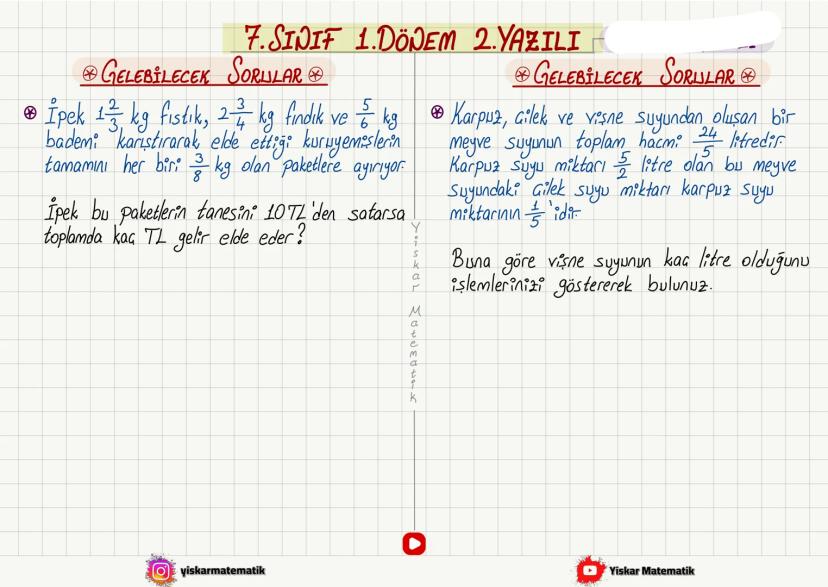 7. SINIF 1. DÖNEM 2. YAZILI
GELEBİLECEK SORULAR
İpek 1 2/3 kg fıstık, 2 3/4 kg fındık ve 5/6 kg
bademi karıştırarak elde ettiği kuruyemişlerin
tamamını her biri 3/8 kg olan paketlere ayırıyor.
İpek bu paketlerin tanesini 10 TL'den satarsa
toplamda kaç TL gelir elde eder?
GELEBİLECEK SORULAR
Karpuz, çilek ve vişne suyundan oluşan bir
meyve suyunun toplam hacmi 24/5 litredir.
Karpuz suyu miktarı 5/2 litre olan bu meyve
suyundaki çilek suyu miktarı karpuz suyu
miktarının 1/5 'idir.
Buna göre vişne suyunun kaç litre olduğunu
işlemlerinizi göstererek bulunuz.
Yiskar Matematik
yiskarmatematik
Yiskar Matematik